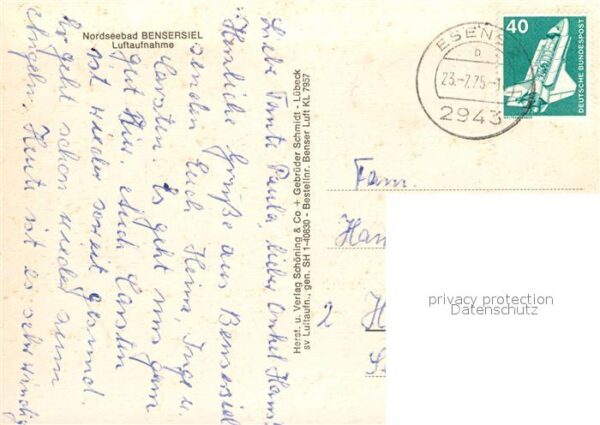 Nordseebad BENSERSIEL
Luftaufnahme
Liebe Tante Paula, lieber Onkel Hans!
Herzliche Grüße aus Bensersiel
senden Euch Heino, Inge u.
Carsten. Es geht uns ganz
gut hier. Auch Carsten
ist wieder soweit gesund.
Er geht schon wieder zum
Angeln. Heute ist es sehr windig
Herst. u. Verlag Schöning & Co + Gebrüder Schmidt - Lübeck
sv Luftaufn., gen. SH 1-40830 - Bestellnr. Benser Luft KL 7957
ESENS
b
23.-7.75-1
2943
40
DEUTSCHE BUNDESPOST
Fam.
Han
2 H
privacy protection
Datenschutz